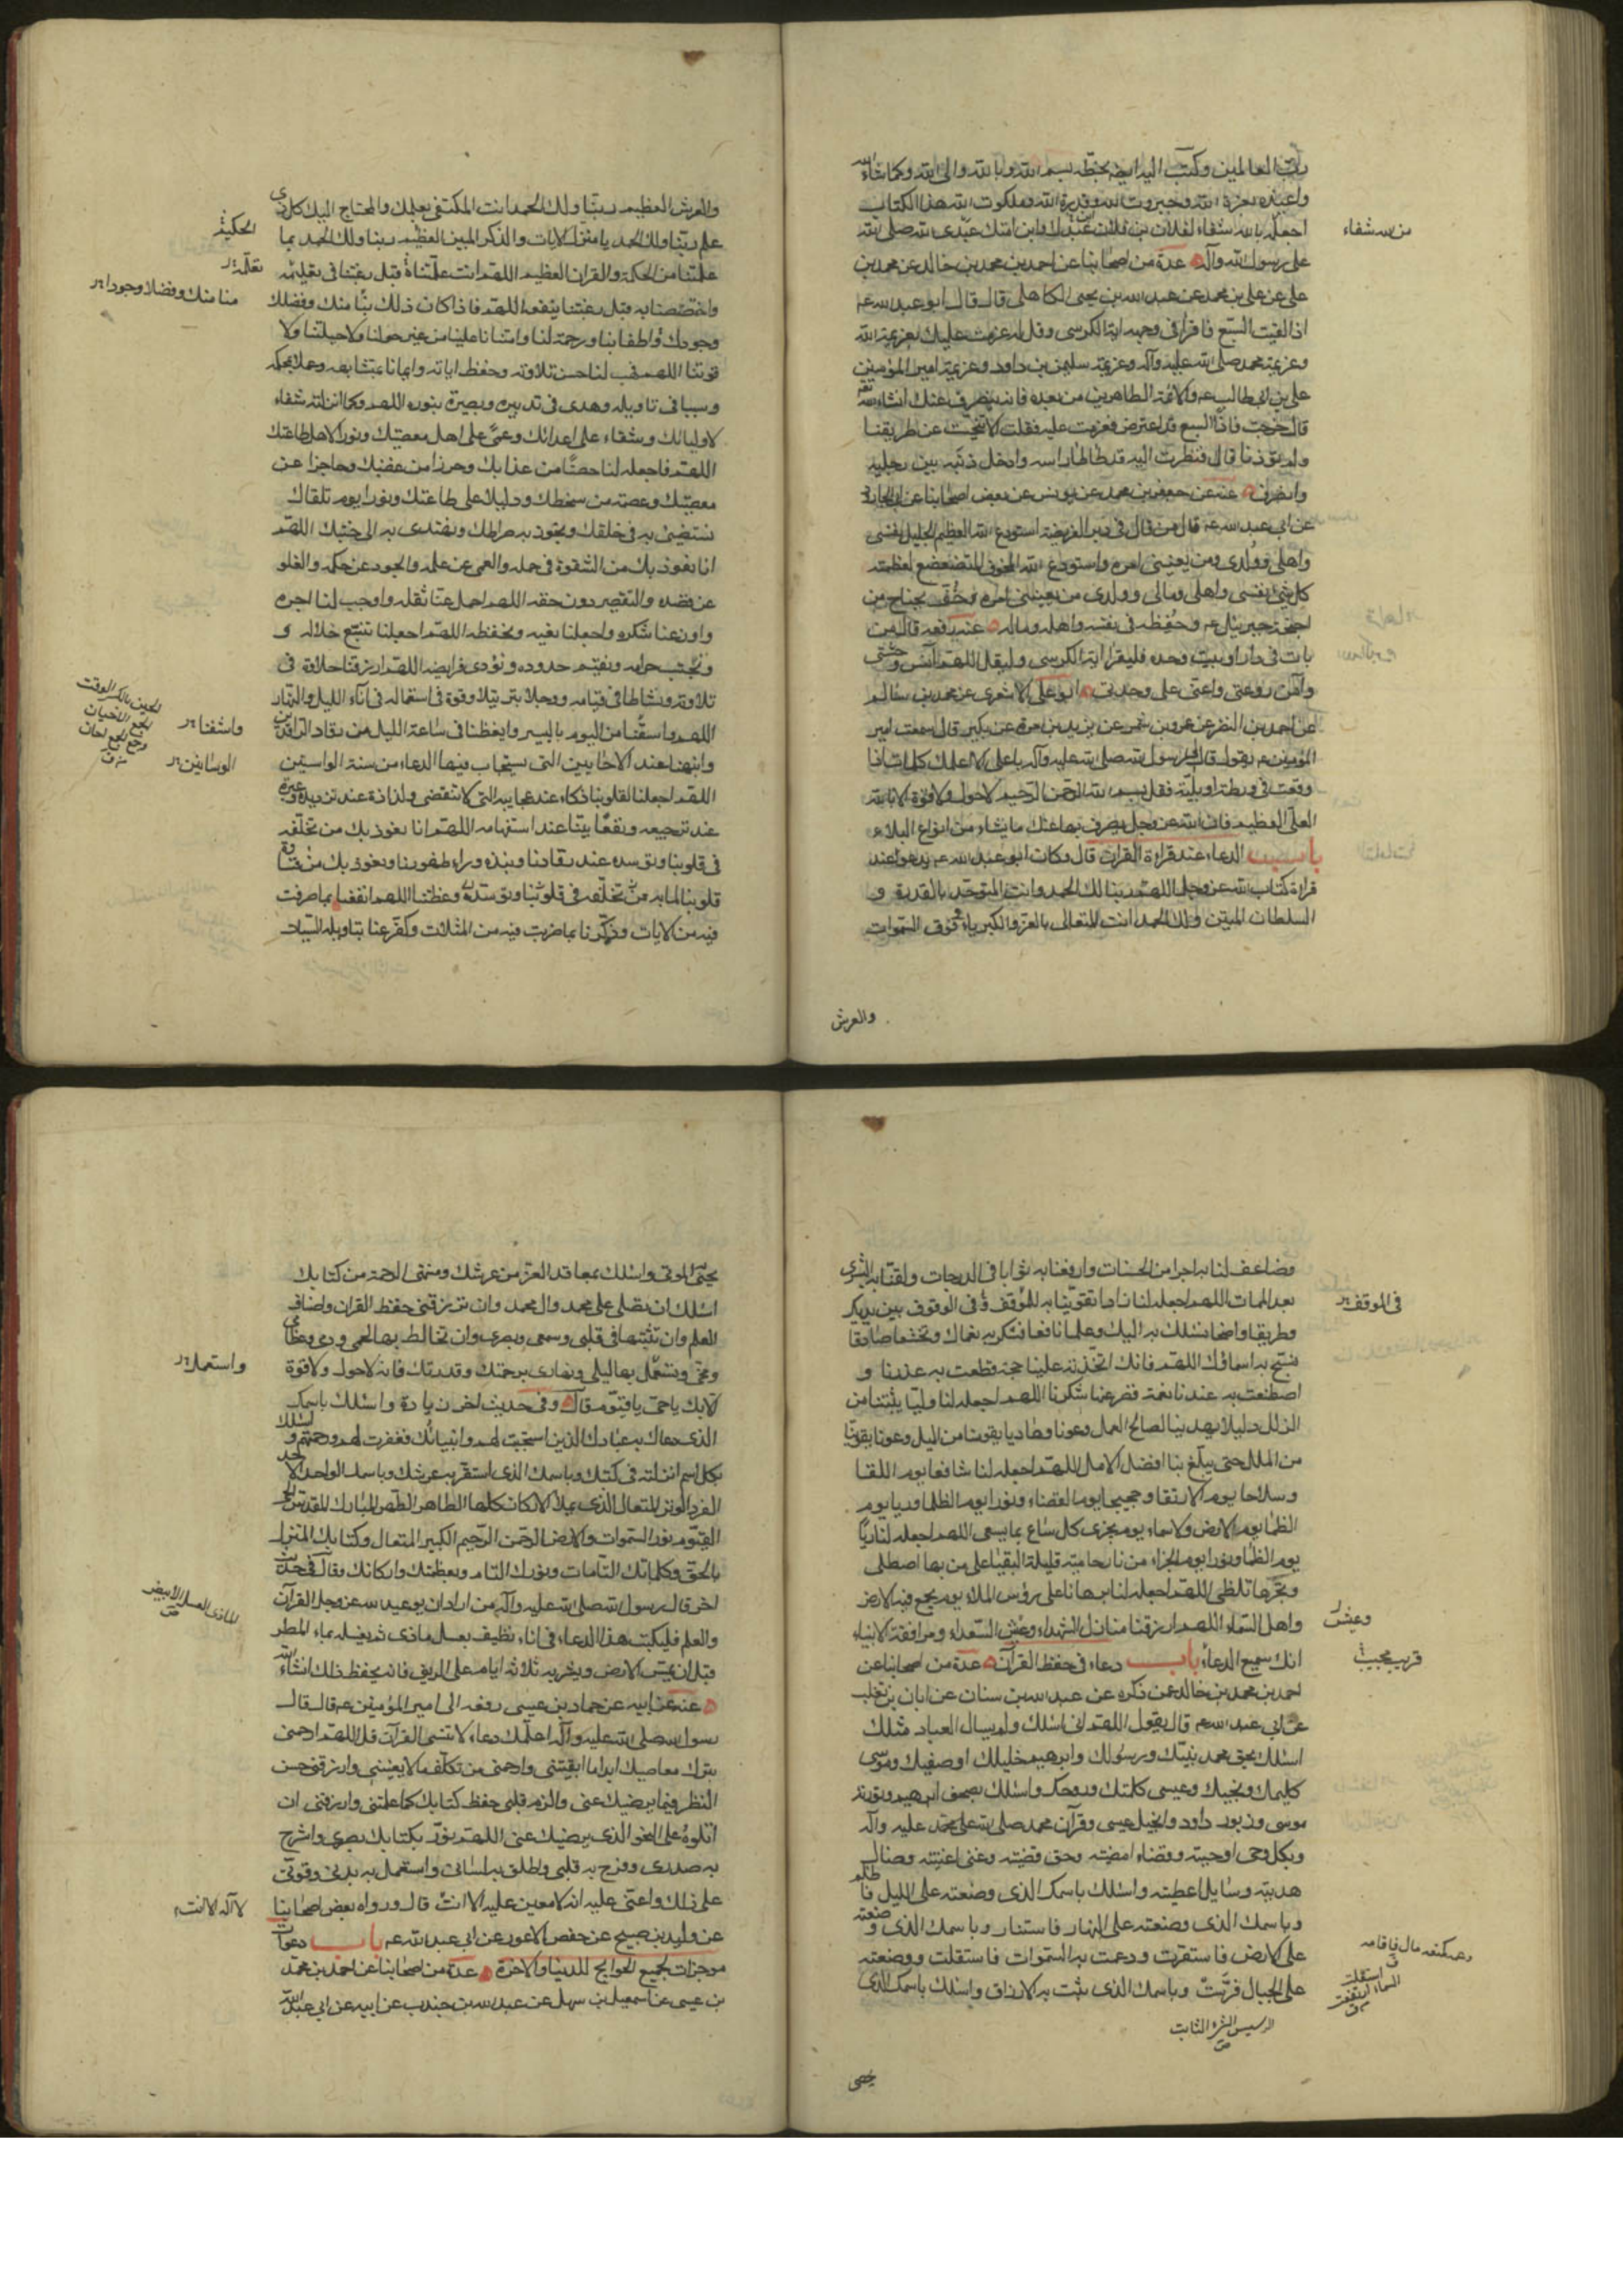 رب العالمين وكتب اليه ايضه بخطه بسم الله وبالله والى الله وكما شاء الله
واعيذه بعزة الله وجبروت الله وقدرة الله وملكوت الله هذا الكتاب
اجعله يا الله شفاء لفلان بن فلان عبدك وابن امتك عبدى الله صلى الله
من الله شفاء
على رسول الله وآله عدة من اصحابنا عن احمد بن محمد بن خالد عن محمد بن
على عن على بن محمد عن عبد الله بن يحيى الكاهلى قال قال ابو عبد الله ع
اذا لقيت السبع فاقرأ فى وجهه اية الكرسى وقل له عزمت عليك بعزيمة الله
وعزيمة محمد صلى الله عليه وآله وعزيمة سليمن بن داود وعزيمة امير المؤمنين
على بن ابى طالب ع والائمة الطاهرين من بعده فانه ينصرف عنك انشاء الله
قال خرجت فاذا السبع قد اعترض فعزمت عليه فقلت الا تنحيت عن طريقنا
ولم تؤذنا قال فنظرت اليه قد طأطأ راسه وادخل ذنبه بين رجليه
وانصرف عنه عن جعفر بن محمد عن يونس عن بعض اصحابنا عن ابى الجارود
عن ابى عبد الله ع قال من قال فى دبر الفريضة استودع الله العظيم الجليل نفسى
واهلى وولدى ومن يعنينى امره واستودع الله المخوف المتضعضع لعظمته
كل شئ نفسى واهلى ومالى وولدى من يعنينى امره وحف بجناح من
اجنحة جبرئيل ع وحفظه فى نفسه واهله وماله عنه رفعه قال من
بات فى دار او بيت وحده فليقرأ اية الكرسى وليقل اللهم آنس وحشتى
وآمن روعتى واعنى على وحدتى ابو على الاشعرى عن محمد بن سالم
عن احمد بن النضر عن عمرو بن شمر عن يزيد بن مرة عن بكير قال سمعت امير
المؤمنين ع يقول قال لى رسول الله صلى الله عليه وآله يا على الا اعلمك كلمات اذا
وقعت فى ورطة او بلية فقل بسم الله الرحمن الرحيم لا حول ولا قوة الا بالله
العلى العظيم فان الله عز وجل يصرف بها عنك ما يشاء من انواع البلاء
باب الدعاء عند قراءة القرآن قال وكان ابو عبد الله ع يدعو عند
قراءة كتاب الله عز وجل اللهم ربنا لك الحمد وانت المتوحد بالقدرة و
السلطان المتين ولك الحمد انت المتعالى بالعز والكبرياء فوق السموات
والعرش
والعرش العظيم ربنا ولك الحمد انت المكتفى بعلمك والمحتاج اليك كل ذى
علم ربنا ولك الحمد يا منزل الايات والذكر المبين العظيم ربنا ولك الحمد بما
الحكيم
علمتنا من الحكمة والقران العظيم اللهم انت علمتناه قبل رغبتنا فى تعليمه
تعلمه
واختصصتنا به قبل رغبتنا بنفعه اللهم فاذا كان ذلك منا منك وفضلك
منا منك وفضلا وجودا
وجودك ولطفا بنا ورحمة لنا وامتنانا علينا من غير حولنا ولا حيلتنا ولا
قوتنا اللهم فهب لنا حسن تلاوته وحفظ اياته وايمانا بمتشابهه وعملا بمحكمه
وسببا فى تاويله وهدى فى تدبيره وبصيرة بنوره اللهم وكما انزلته شفاء
لاوليائك وشقاء على اعدائك وعمى على اهل معصيتك ونورا لاهل طاعتك
اللهم فاجعله لنا حصنا من عذابك وحرزا من غضبك وحاجزا عن
معصيتك وعصمة من سخطك ودليلا على طاعتك ونورا يوم تلقاك
نستضئ به فى خلقك ونجوز به صراطك ونهتدى به الى جنتك اللهم
انا نعوذ بك من الشقوة فى حمله والعمى عن علمه والجود عن حكمه والغلو
عن قصده والتقصير دون حقه اللهم احمل عنا ثقله واوجب لنا اجره
واوزعنا شكره واجعلنا نعيه ونحفظه اللهم اجعلنا نتبع حلاله و
ونجتنب حرامه ونقيم حدوده ونؤدى فرايضه اللهم ارزقنا حلاوة فى
تلاوته ونشاطا فى قيامه ووجلا بترتيله وقوة فى استعماله فى آناء الليل والنهار
اللهم واسقنا من النوم باليسير وايقظنا فى ساعة الليل من رقاد الراقدين
واشفنا
وانبهنا عند الاحايين التى يستجاب فيها الدعاء من سنة الواسنين
الوسنانين
الحين بالكسر الوقت
اللهم اجعل لقلوبنا ذكاء عند عجايبه التى لا تنقضى ولذاذة عند ترديده وعبرة
عند ترجيعه ونفعا بينا عند استفهامه اللهم انا نعوذ بك من تخلفه
فى قلوبنا وتوسده عند رقادنا ونبذه وراء ظهورنا ونعوذ بك من قساوة
قلوبنا لما به من تخلفه فى قلوبنا وتوسده وعظتنا اللهم انفعنا بما صرفت
فيه من الايات وذكرنا بما ضربت فيه من المثلات وكفر عنا بتاويله السيئات
وضاعف لنا به اجرا من الحسنات وارفعنا به ثوابا فى الدرجات ولقنا به البشرى
بعد الممات اللهم اجعله لنا زادا تقوينا به للموقف وفى الوقوف بين يديك
فى الموقف
وطريقا واضحا نسلك به اليك وعلما نافعا نشكر به نعماك وتخشعا صادقا
نسبح به اسمائك اللهم فانك اتخذت به علينا حجة قطعت به عذرنا و
اصطنعت به عندنا نعمة قصر عنها شكرنا اللهم اجعله لنا وليا يثبتنا من
الزلل دليلا يهدينا لصالح العمل وعونا وهاديا يقومنا من الميل وعونا يقوينا
من الملل حتى يبلغ بنا افضل الامل اللهم اجعله لنا شافعا يوم اللقا
وسلاحا يوم الارتقا وحجيجا يوم القضاء ونورا يوم الظلما يوم
الظما يوم لا ارض ولا سماء يوم يجزى كل ساع بما يسعى اللهم اجعله لنا ريا
يوم الظما ونورا يوم الجزاء من نار حامية قليلة البقيا على من بها اصطلى
وبحرها تلظى اللهم اجعله لنا برهانا على رؤس الملاء يوم يجمع فيه اهل الارض
واهل السماء اللهم ارزقنا منازل الشهداء وعيش السعداء ومرافقة الانبياء
وعيش
انك سميع الدعاء باب دعاء فى حفظ القرآن عدة من اصحابنا عن
قريب مجيب
احمد بن محمد بن خالد عمن ذكره عن عبد الله بن سنان عن ابان بن تغلب
عن ابى عبد الله ع قال يقول اللهم انى اسئلك ولم يسال العباد مثلك
اسئلك بحق محمد نبيك ورسولك وابرهيم خليلك وصفيك وموسى
كليمك ونجيك وعيسى كلمتك وروحك واسئلك بصحف ابرهيم وتورية
موسى وزبور داود وانجيل عيسى وقرآن محمد صلى الله على محمد عليه وآله
وبكل وحى اوحيته وقضاء امضيته وحق قضيته وغنى اغنيته وضال
هديته وسايل اعطيته واسئلك باسمك الذى وضعته على الليل فاظلم
وباسمك الذى وضعته على النهار فاستنار وباسمك الذى وضعته
على الارض فاستقرت ودعمت به السموات فاستقلت ووضعته
دعمه كمنعه مال فاقامه
استقلت السماء ارتفعت
على الجبال فرست وباسمك الذى بثثت به الارزاق واسئلك باسمك الذى
الرسيس الشئ الثابت
يحيى
يحيى الموتى واسئلك بمعاقد العز من عرشك ومنتهى الرحمة من كتابك
اسئلك ان تصلى على محمد وال محمد وان ترزقنى حفظ القران واصناف
العلم وان تثبتها فى قلبى وسمعى وبصرى وان تخالط بها لحمى ودمى وعظامى
ومخى وتستعمل بها ليلى ونهارى برحمتك وقدرتك فانه لا حول ولا قوة
واستعمل
الا بك يا حى يا قيوم قال وفى حديث اخر زيادة واسئلك باسمك
الذى دعاك به عبادك الذين استجبت لهم وانبيائك فغفرت لهم ورحمتهم واسئلك
بكل اسم انزلته فى كتبك وباسمك الذى استقر به عرشك وباسمك الواحد الاحد
الفرد الوتر المتعال الذى يملأ الاركان كلها الطاهر الطهر المبارك المقدس الحى
القيوم نور السموات والارض الرحمن الرحيم الكبير المتعال وكتابك المنزل
بالحق وكلماتك التامات ونورك التام وبعظمتك واركانك وقال فى حديث
اخر قال رسول الله صلى الله عليه وآله من اراد ان يوعيه الله عز وجل القرآن
الماذى العسل الابيض
والعلم فليكتب هذا الدعاء فى اناء نظيف بعسل ماذى ثم يغسله بماء المطر
قبل ان يمس الارض ويشربه ثلاثة ايام على الريق فانه يحفظ ذلك انشاء الله
عنه عن ابيه عن حماد بن عيسى رفعه الى امير المؤمنين ع قال قال
رسول الله صلى الله عليه وآله اعلمك دعاء لا تنسى القرآن قل اللهم ارحمنى
بترك معاصيك ابدا ما ابقيتنى وارحمنى من تكلف ما لا يعنينى وارزقنى حسن
النظر فيما يرضيك عنى والزم قلبى حفظ كتابك كما علمتنى وارزقنى ان
اتلوه على النحو الذى يرضيك عنى اللهم نور بكتابك بصرى واشرح
به صدرى وفرح به قلبى واطلق به لسانى واستعمل به بدنى وقونى
على ذلك واعنى عليه انه لا معين عليه الا انت قال ورواه بعض اصحابنا
لا اله الا انت
عن وليد بن صبيح عن حفص الاعور عن ابى عبد الله ع باب دعوات
موجزات لجميع الحوايج للدنيا والاخرة عدة من اصحابنا عن احمد بن محمد
بن عيسى عن اسمعيل بن سهل عن عبد الله بن جندب عن ابيه عن ابى عبد الله